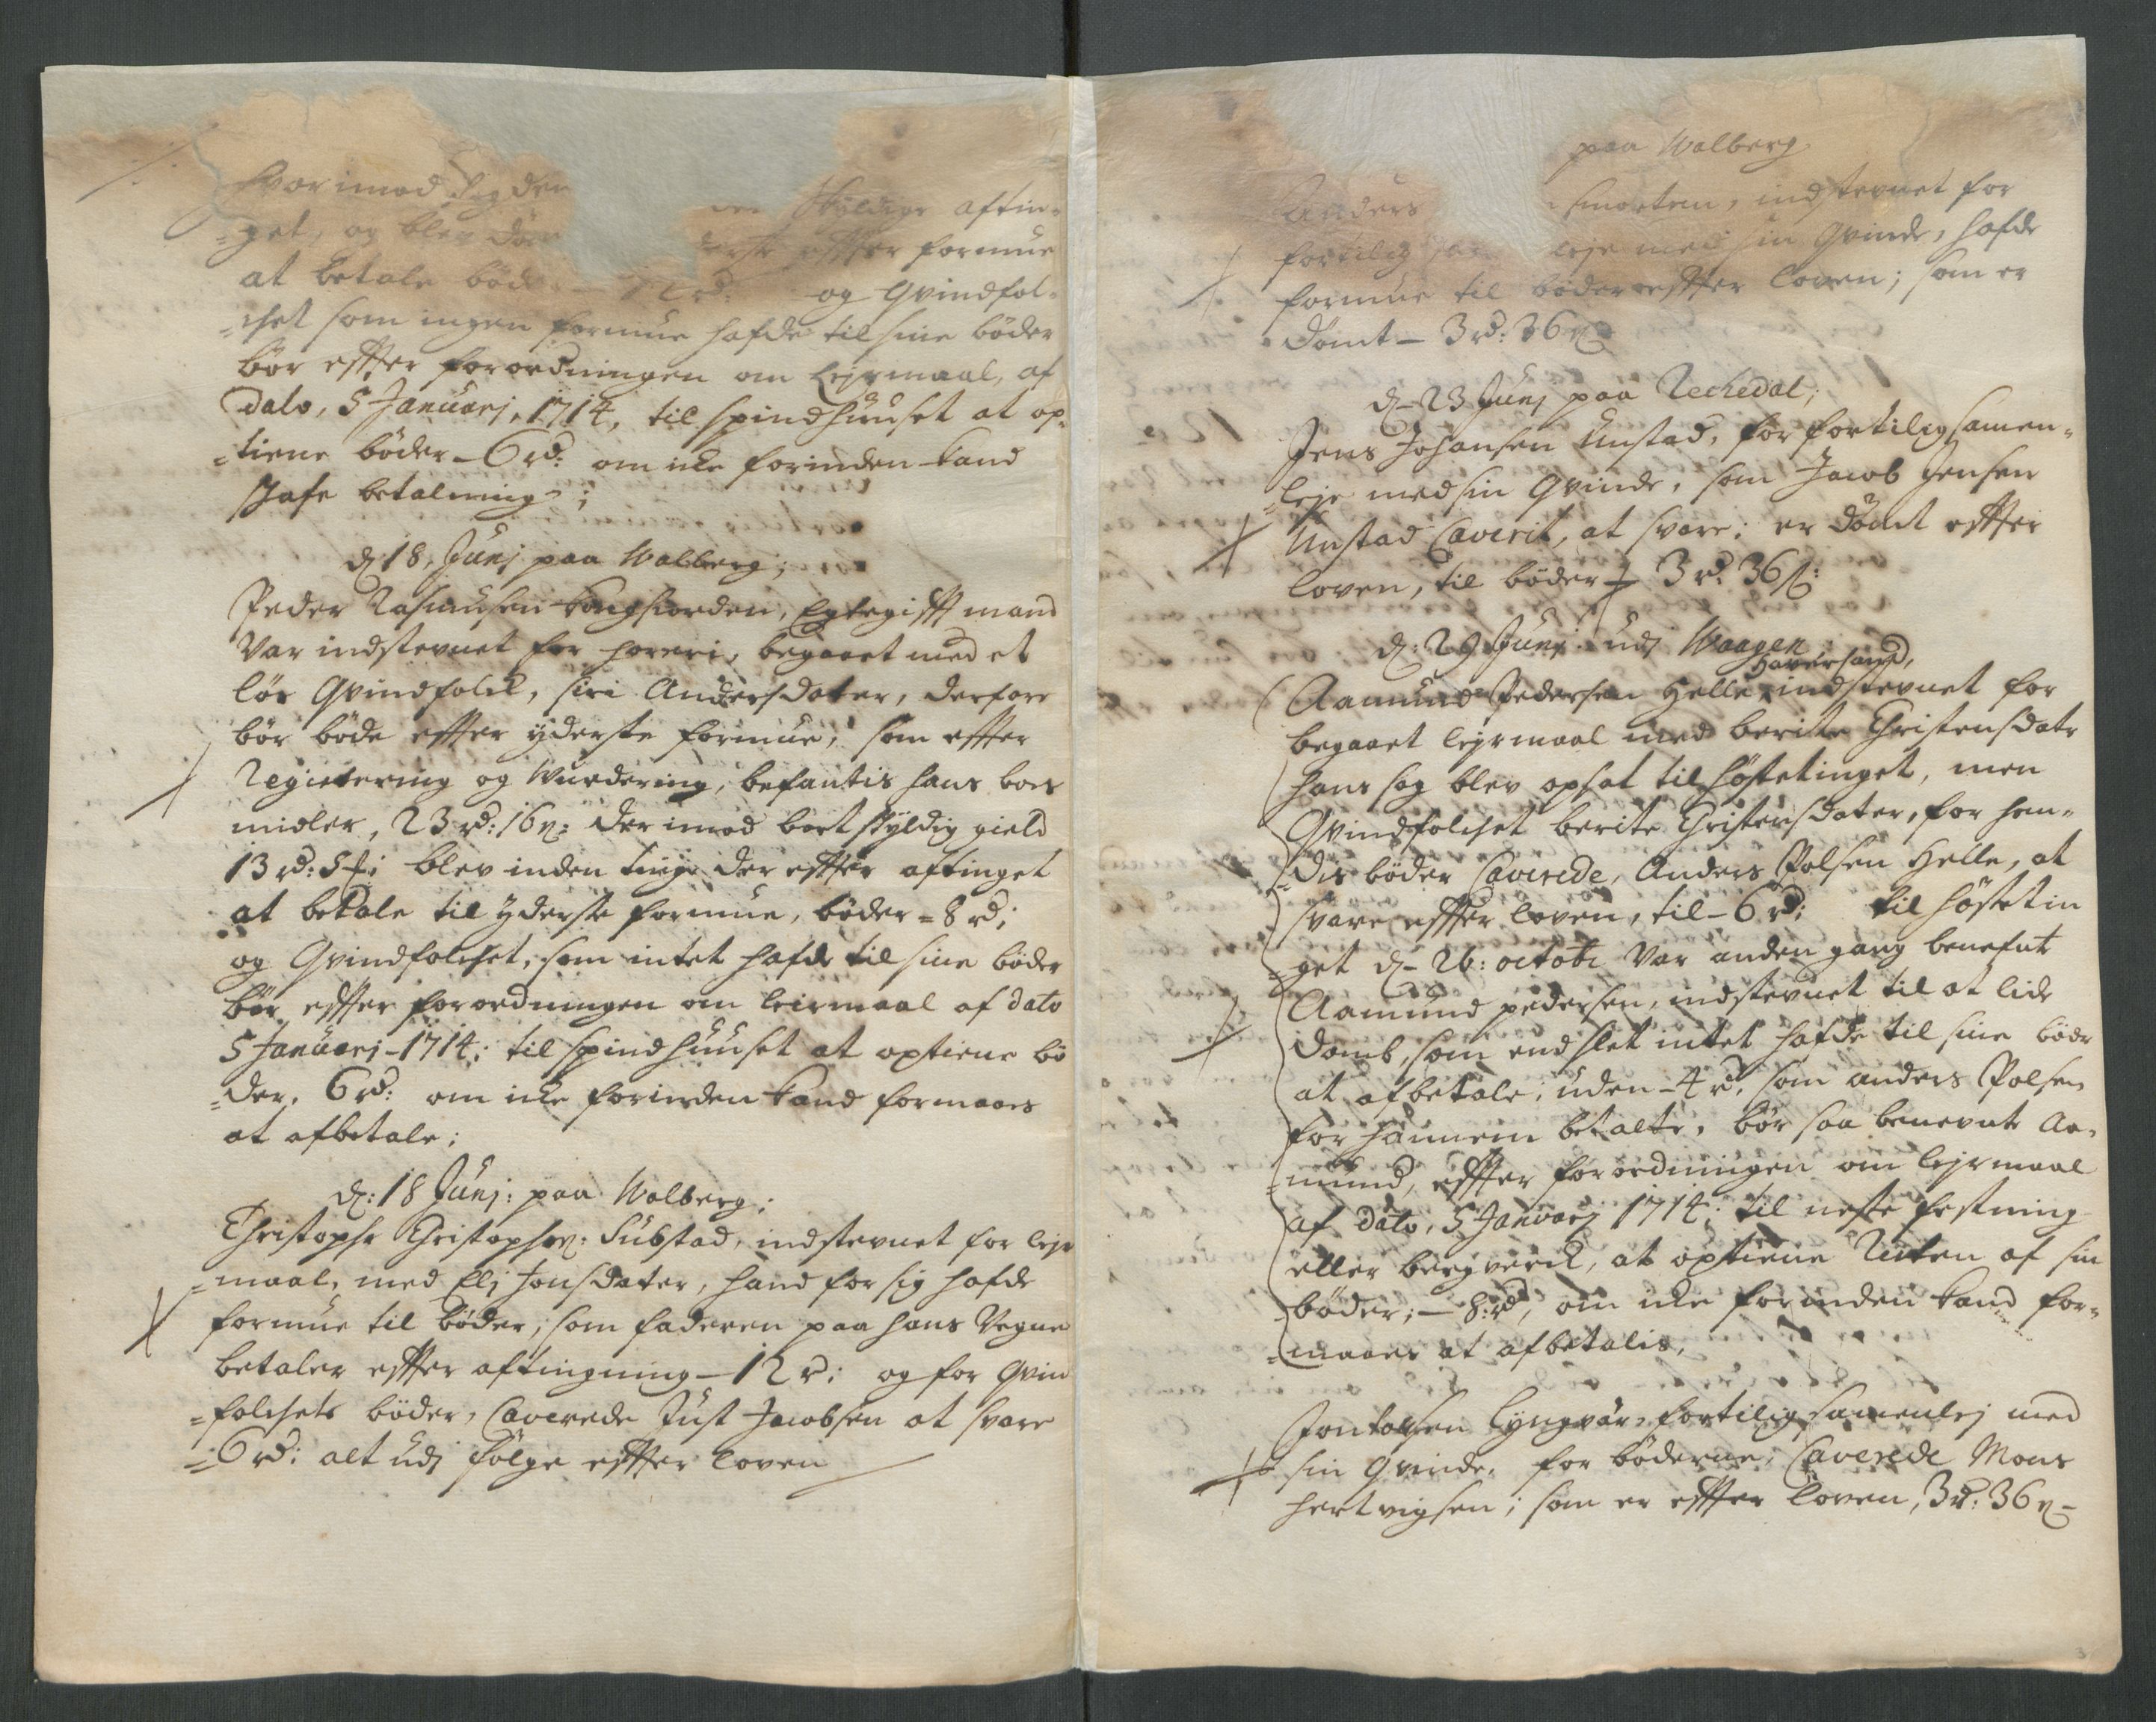 hvorimod sig den skyldige aftin=
=get, og blev døm yderste effter formue
at betale bød 12 rd: og Qvindfol=
=chet som ingen formue hafde til sine bøder
bør effter forordningen om Lejrmaal, af
Dato, 5 Januarj, 1714, til spindhuuset at op=
=tiene bøder - 6 rd: om icke forinden kand
skafe betalning;
d: 18, Junj paa Walberg;
Peder Rasmusen Kongsiorden, Egtegifft mand
var indstevnet for horeri, begaaet med et
løs Qvindfolck, siri Andersdater, derfore
bør bøde effter yderste formue, som effter
Registering og Wurdering, befantis hans boes
midler, 23 rd: 16 s: der imod bort skyldig gield
13 rd: 5 s: blev inden ting der effter aftinget
at betale til yderste formue, bøder = 8 rd;
og Qvindfolchet, som intet hafde til sine bøder
bør effter forordningen om leirmaal af dato
5 Januarj - 1714; til spindhuuset at optiene bø
=der, 6 rd: om icke forinden kand formaaes
at afbetale;
d: 18 Junj: paa Walberg;
Christopher Christophersen: Substad, indstevnet for lejr
=maal, med Elj Jonsdater, hand for sig hafde
formue til bøder, som faderen paa hans Vegne
betaler effter aftingning - 12 r; og for Qvin
=folchets bøder, Caverede Just Jacobsen at svare
=6 rd: alt udj følge effter loven
paa Walberg
Anders smorten, indstevnet for
fortilig sam leje med sin Qvinde, hafde
formue til bøder effter loven; som er
dømt - 3 rd: 36 s
d - 23 Junj paa Rechedal;
Jens Johansen Unstad, for fortilig samen=
=leje med sin Qvinde, som Jacob Jensen
Unstad Caverit, at svare; er dømt effter
loven, til bøder - 3 rd: 36 s:
d: 29 Junj udj Waagen
Haversand,
Aamund Pedersen Helle, indstevnet for
begaaet lejrmaal med berite Christensdatr
hans sag blev opsat til høstetinget, men
Qvindfolchet berite Christensdater, for hen=
=dis bøder Caverede, Anders Polsen Helle, at
svare effter loven, til - 6 rd; til høstetin
=get d - 26: octobr var anden gang benefnt
Aamund pedersen, indstevnet til at lide
domb, som endslet intet hafde til sine bødr
at afbetale, uden - 4 r, som anders Polsen
for hannem betalte, bør saa benevnte Aa=
=mund, effter forordningen om lejrmaal
af dato, 5 Januarj 1714; til neste festning
eller bergverck, at optiene Resten af sin
bøder; - 8: rd, om icke forinden kand for=
=maaes at afbetalis,
Jon tolfsen Lyngvær, fortilig samenlej med
sin Qvinde, for bøderne, Caverede Mons
hertvigsen; som er effter loven, 3 r: 36 s -